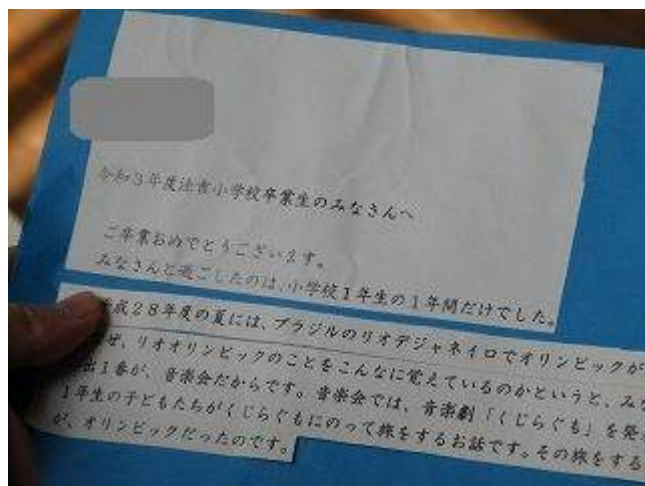 令和3年度法吉小学校卒業生のみなさんへ
ご卒業おめでとうございます。
みなさんと過ごしたのは、小学校1年生の1年間だけでした。
成28年度の夏には、ブラジルのリオデジャネイロでオリンピックが
ぜ、リオオリンピックのことをこんなに覚えているのかというと、みな
出1番が、音楽会だからです。音楽会では、音楽劇「くじらぐも」を発
1年生の子どもたちがくじらぐもにのって旅をするお話です。その旅をする
が、オリンピックだったのです。